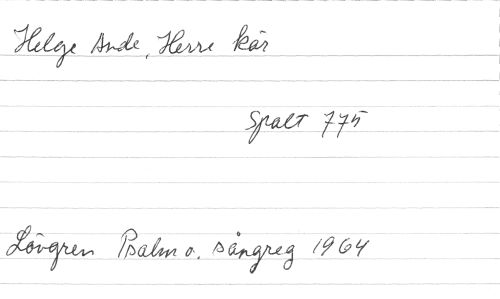 Helge Ande, Herre kär
Spalt 775
Lövgren Psalm o. sångreg 1964